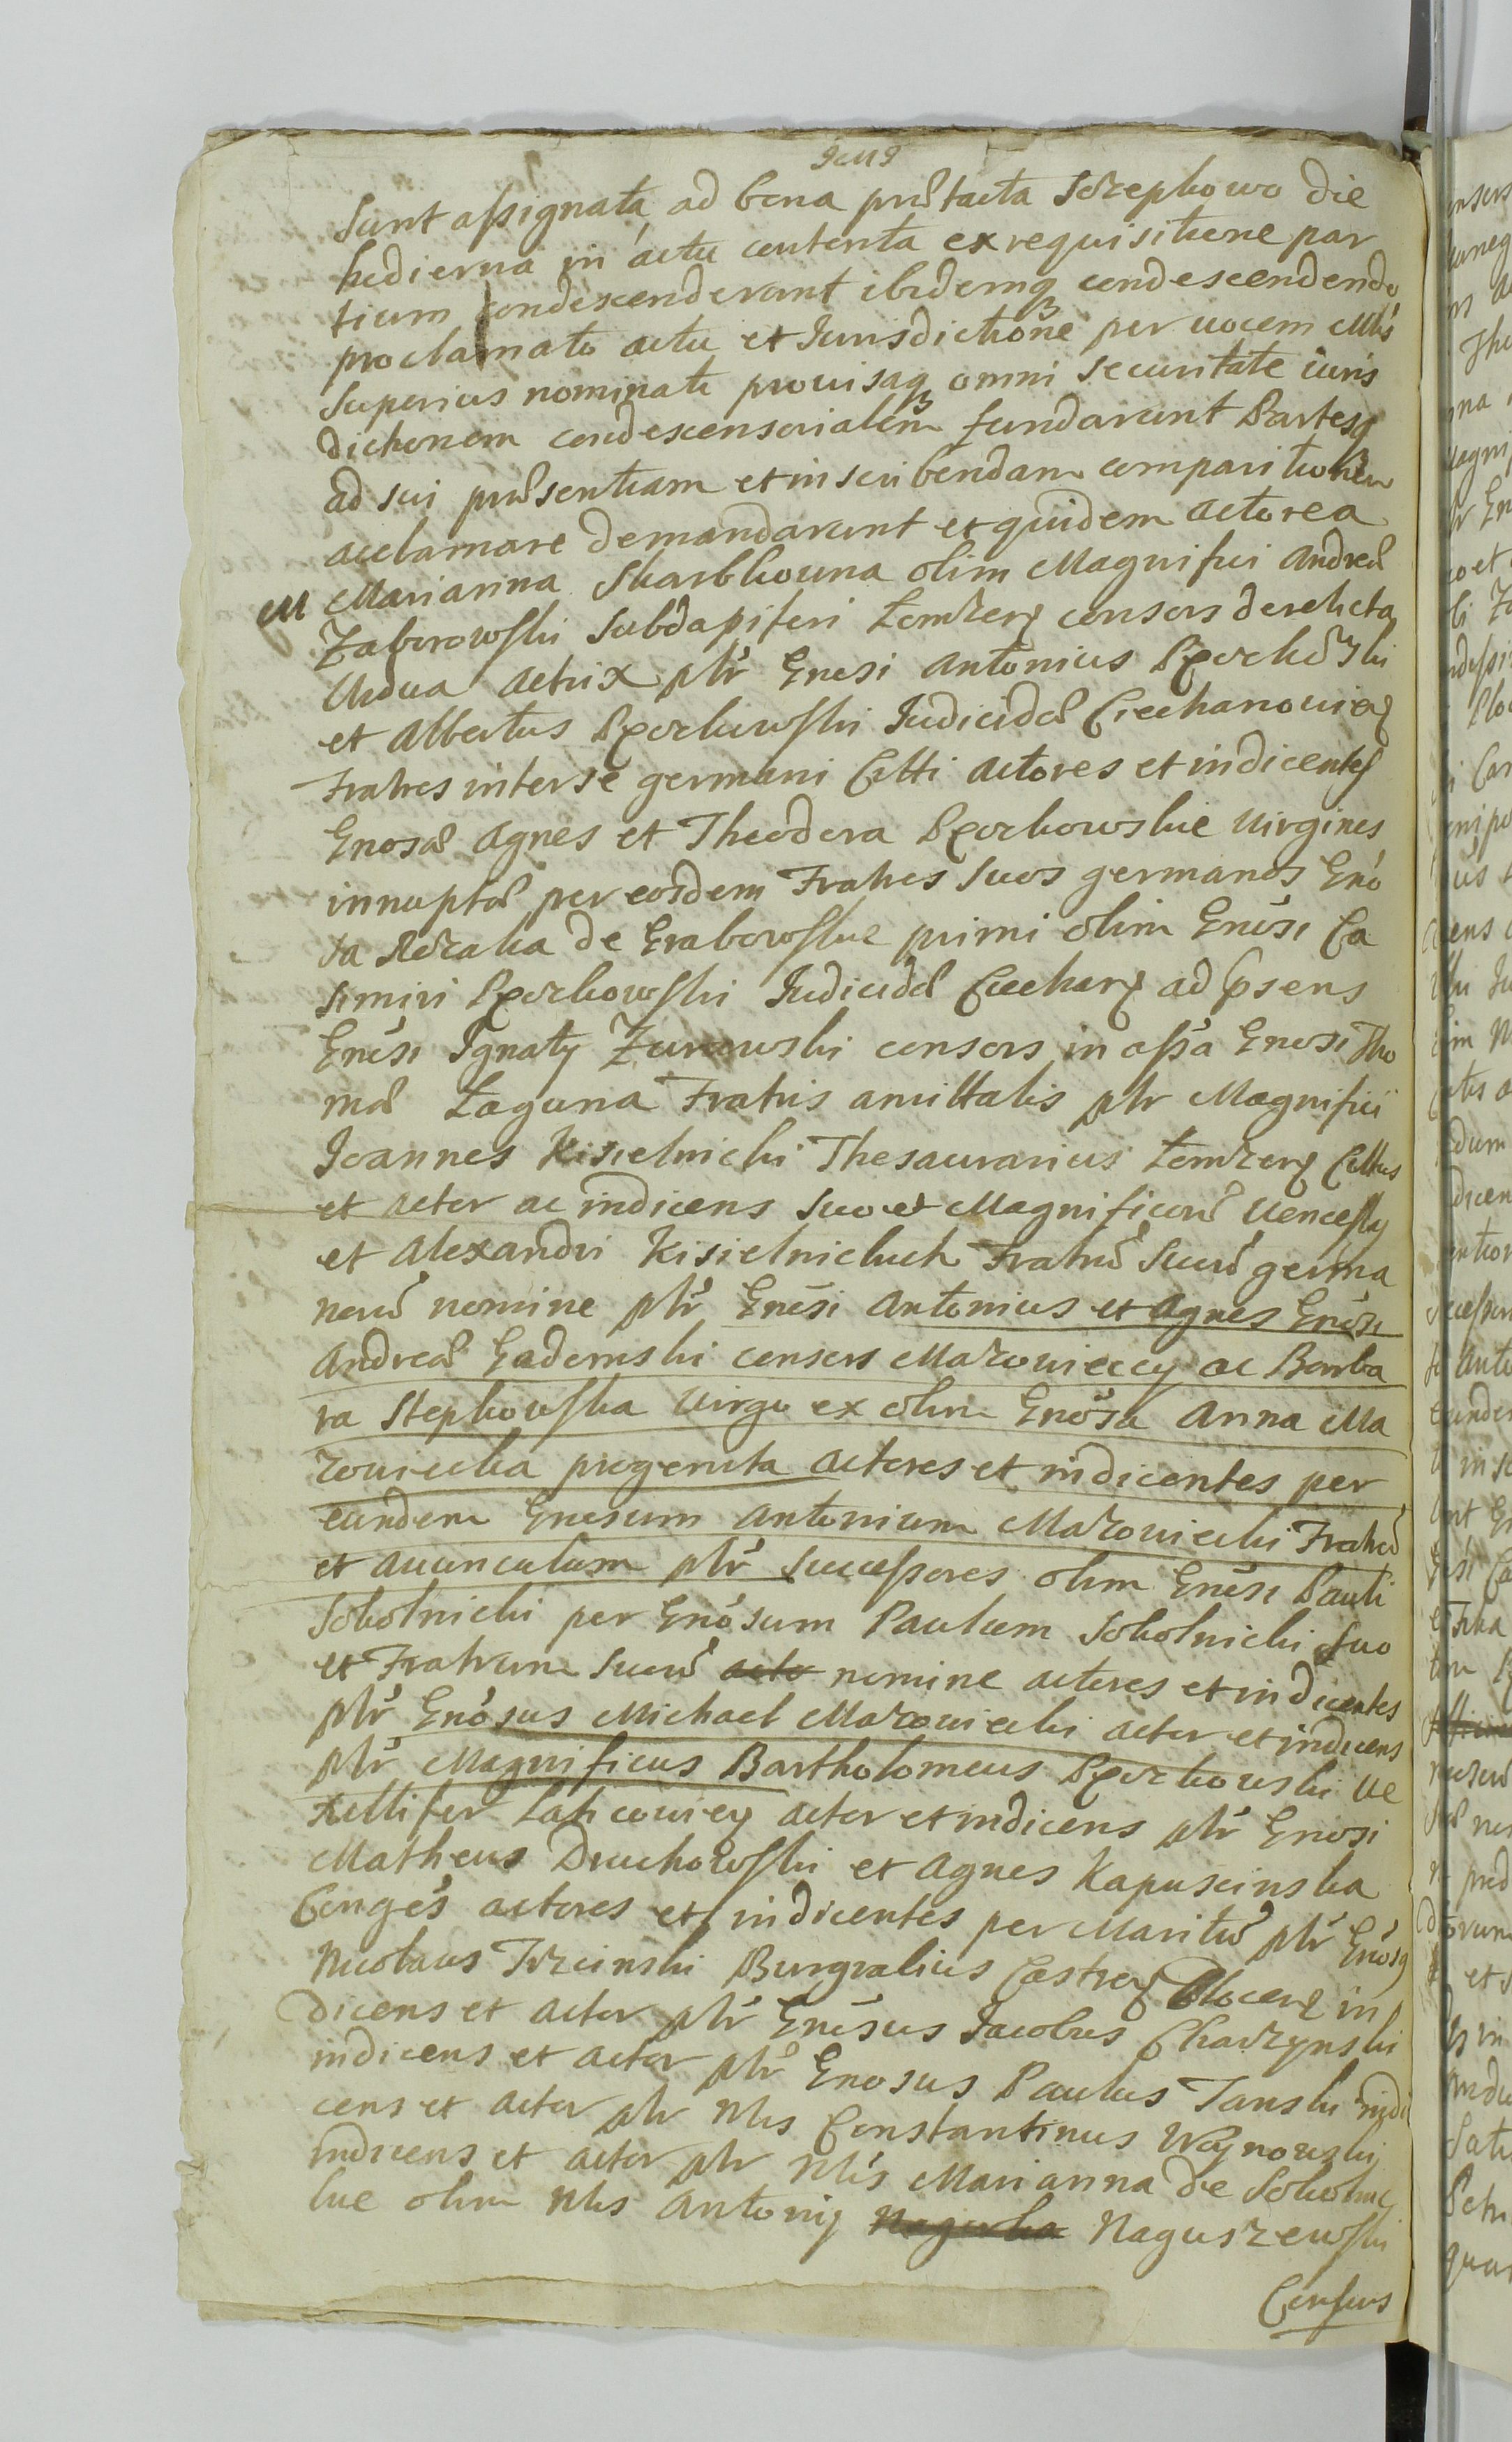 Sunt assignata, ad bona prætacta Szczepkowo die
hodierna in actu contenta ex requisitione par
tium condescenderunt ibidemq condescendendo
proclamato actu et Jurisdictione per vocem Mlis
Superius nominati provisaq omni securitate iuris
dictionem condescensorialem fundarunt Partesq
ad sui præsentiam et inscribendam comparitionem
acclamare demandarunt et quidem actorea
M Marianna Skarbkowna olim Magnifici Andreæ
Zaborowski Subdapiferi Łomzen consors derelicta
Vidua actrix ptr Gnosi Antonius
et Albertus Judicidæ Ciechanovien
Fratres inter se germani Citti actores et indicentes
Gnosæ Agnes et Theodora Virgines
innuptæ per eosdem Fratres suos germanos Gno
sa de Grabowskie primi olim Gnosi Ca
simiri Judicidæ Ciechan ad psens
Gnosi Ignaty Zurowski consors in assa Gnosi Tho
mæ Łaguna Fratris amittalis ptr Magnifici
Joannes Kisielnicki Thesaurarius Łomzen Cittus
et actor ac indicens suo et Magnificorū Venceslaj
et Alexandri Kisielnickich Fratrū Suorū germa
norū nomine ptr Gnosi Antonius et Agnes Gnosi
Andreæ Gadomski consors Mazowieccy ac Barba
ra Stepkowska Virgo ex olim Gnosa Anna Ma
zowiecka progenita actores et indicentes per
eundem Gnosum Antonium Mazowiecki Fratrē
et avunculum ptr Successores olim Gnosi Pauli
Sokolnicki per Gnosum Paulum Sokolnicki suo
et Fratrum Suorū acto nomine actores et indicentes
ptr Gnosus Michael Mazowiecki actor et indicens
ptr Magnificus Bartholomeus Ve
xillifer Laticovien actor et indicens ptr Gnosi
Matheus Druchowski et Agnes Kapuscinska
Conges actores et indicentes per Maritū ptr Gnosq
Nicolaus Trzcinski Burgrabius Castren Plocen in
dicens et actor ptr Gnosus Jacobus Charzynski
indicens et actor ptr Gnosus Paulus Tanski indi
cens et actor ptr Nlis Constantinus Woynowski
indicens et actor ptr Nlis Marianna de Sokolnic
kie olim Nlis Antonij Naguszewski
Consors